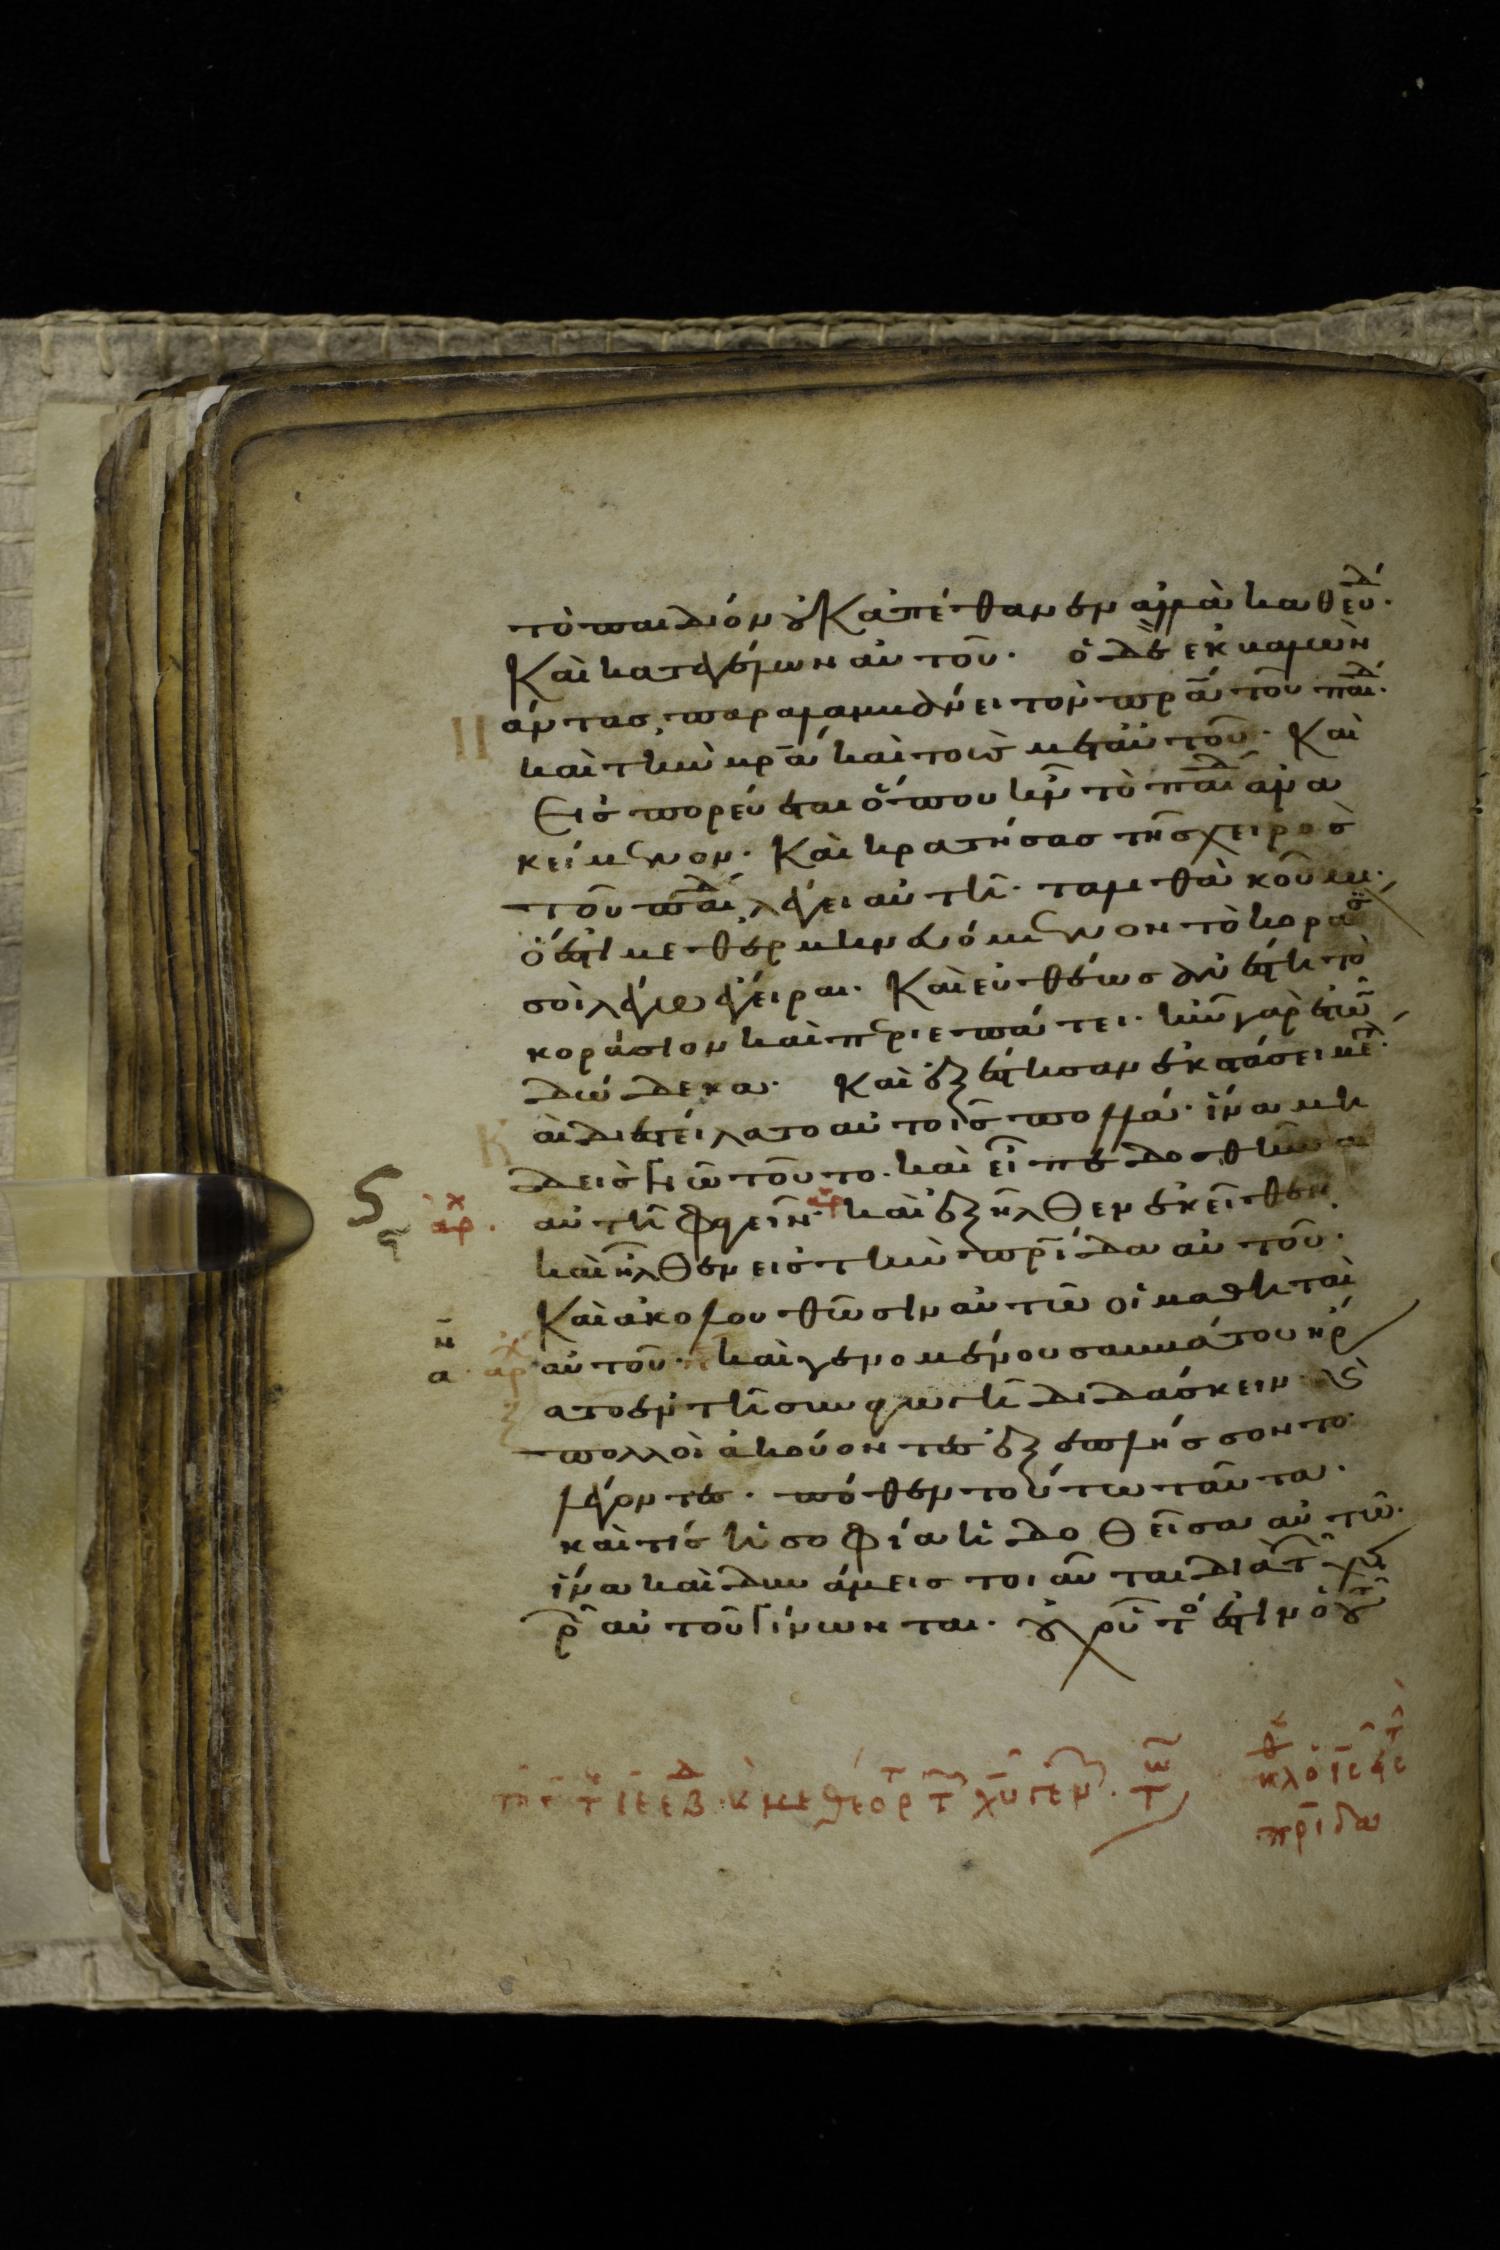 τὸ παιδίον οὐκ ἀπέθανεν ἀλλὰ καθεύδ.
Καὶ κατεγέλων αὐτοῦ. ὁ δὲ ἐκβαλὼν
άντας παραλαμβάνει τὸν πρ̅α τοῦ παιδ.
καὶ τὴν μρ̅α καὶ τοὺς μετ αὐτοῦ. Καὶ
εἰσπορεύεται ὅπου ἦν τὸ παιδ ἀνα
κείμενον. Καὶ κρατήσας τῆς χειρὸς
τοῦ παιδ λέγει αὐτῆ. ταλιθὰ κοῦμι.
ὅ ἐστι μεθερμηνευόμενον τὸ κορασ
σοὶ λέγω ἔγειραι. Καὶ εὐθέως ἀνέστη τὸ
κοράσιον καὶ περιεπάτει. ἦν γὰρ ἐτῶν
δώδεκα. Καὶ ἐξέστησαν ἐκστάσει μεγ.
αὶ διεστείλατο αὐτοῖς πολλά. ἵνα μη
δεὶς γνῶ τοῦτο. καὶ εἶπε δοθῆναι
αὐτῆ φαγεῖν. καὶ ἐξῆλθεν ἐκεῖθεν.
καὶ ἦλθεν εἰς τὴν πρ̅ίδα αὐτοῦ.
Καὶ ἀκολουθοῦσιν αὐτῶ οἱ μαθηταὶ
αὐτοῦ. καὶ γενομένου σαββάτου ἤρ
ξατο ἐν τῆ συναγωγῆ διδάσκειν. καὶ
πολλοὶ ἀκούοντες ἐξεπλήσσοντο
λέγοντες. πόθεν τούτω ταῦτα.
καὶ τίς ἡ σοφία ἡ δοθεῖσα αὐτῶ.
ἵνα καὶ δυνάμεις τοιαῦται διὰ τ χει
ρ αὐτοῦ γίνωνται. οὐχ οὗτός ἐστιν ὁ
πρ̅ιδα